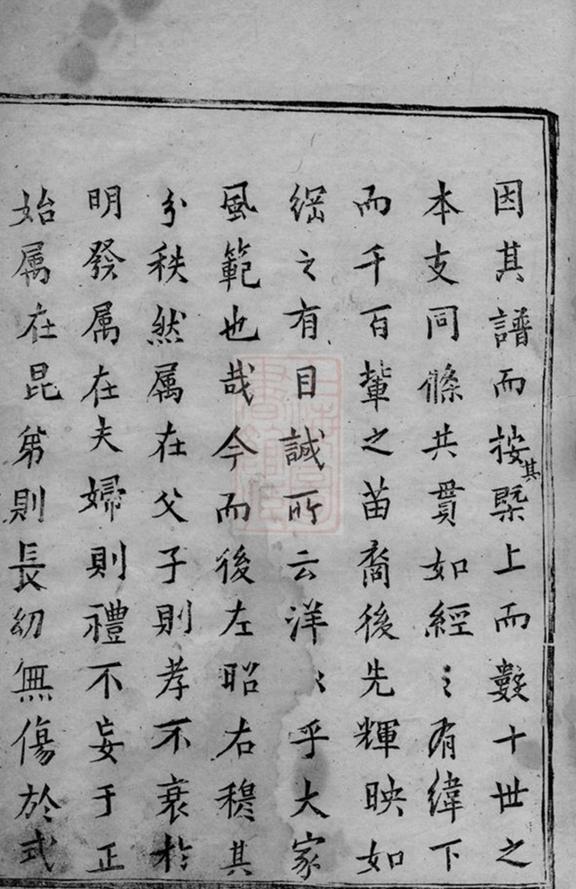 因其譜而按其槩上而數十世之
本支同條共貫如經〻有緯下
而千百輩之苗裔後先輝映如
綱之有目誠所云洋〻乎大家
風範也哉今而後左昭右穆其
分秩然属在父子則孝不衰於
明發属在夫婦則禮不妄于正
始属在昆弟則長幼無傷於式